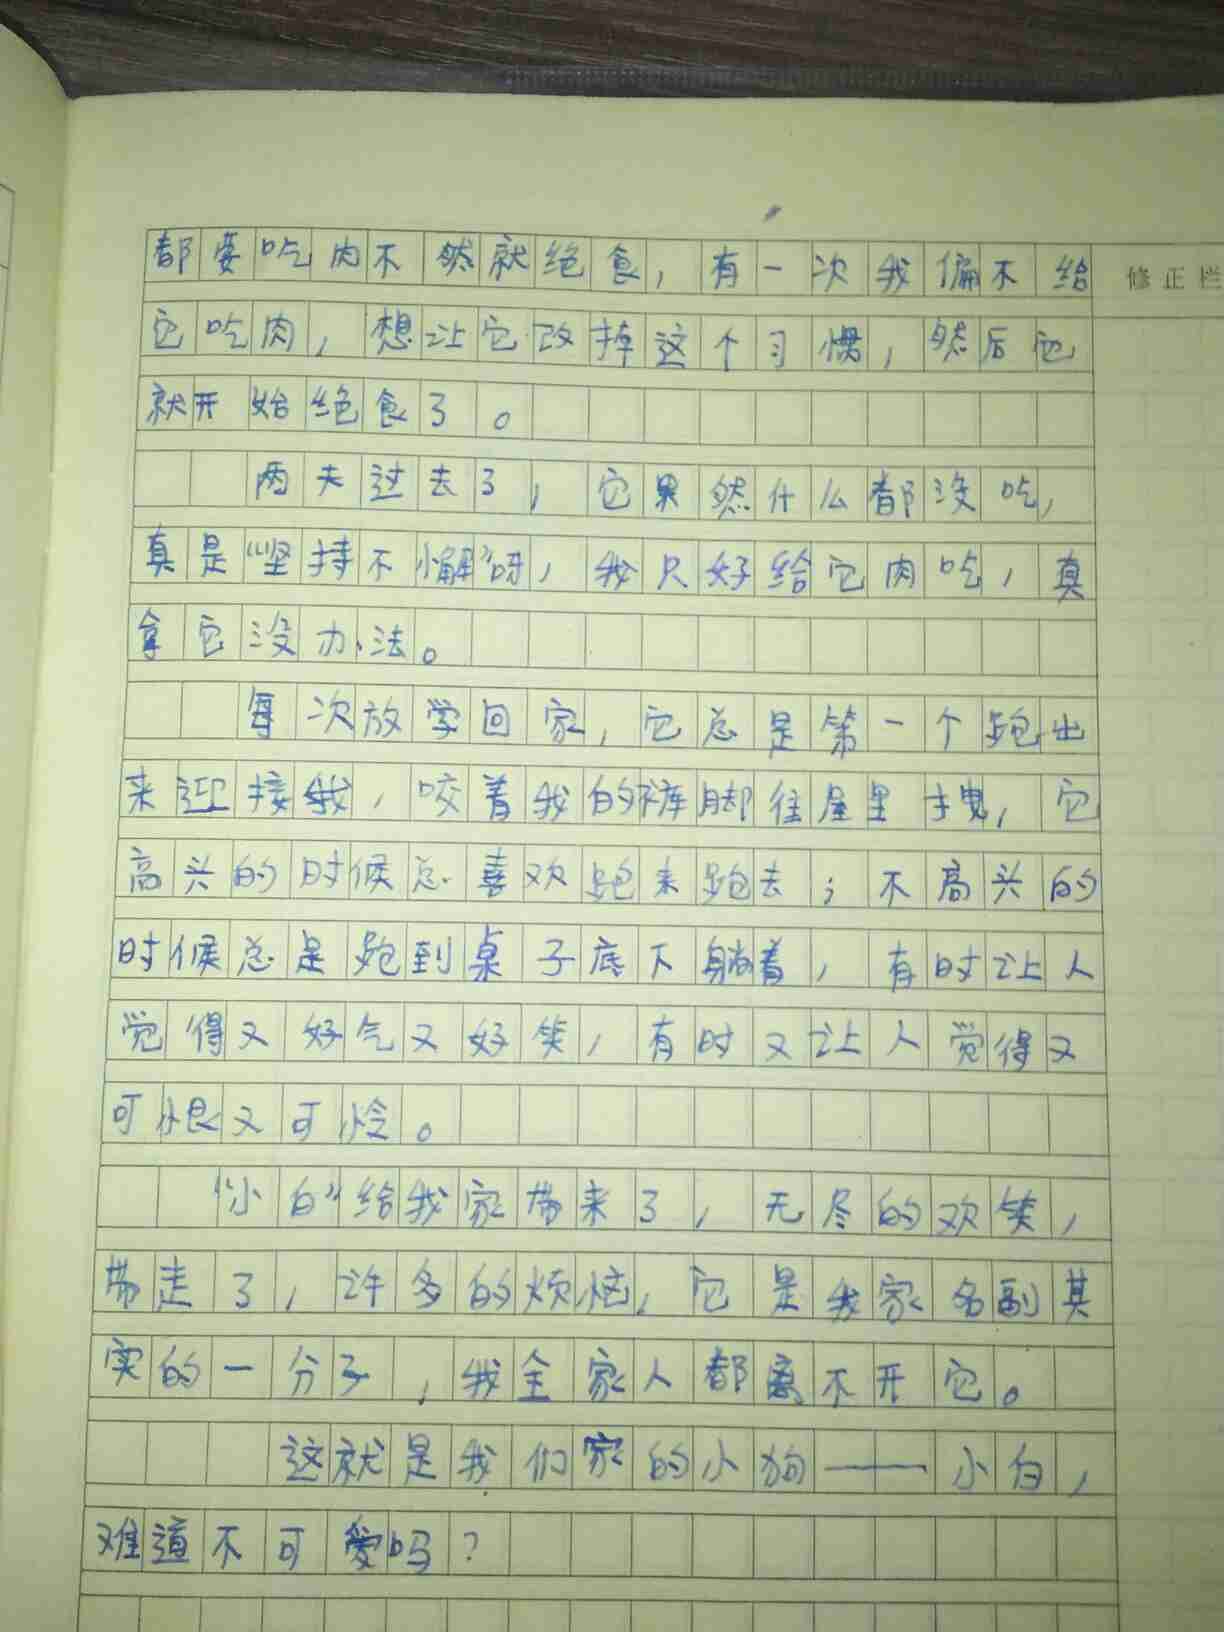 都要吃肉不然就绝食，有一次我偏不给
修正栏
它吃肉，想让它改掉这个习惯，然后它
就开始绝食了。
两天过去了，它果然什么都没吃，
真是“坚持不懈”呀，我只好给它肉吃，真
拿它没办法。
每次放学回家，它总是第一个跑出
来迎接我，咬着我的裤脚往屋里拽，它
高兴的时候总喜欢跑来跑去；不高兴的
时候总是跑到桌子底下躺着，有时让人
觉得又好气又好笑，有时又让人觉得又
可恨又可怜。
“小白”给我家带来了，无尽的欢笑，
带走了，许多的烦恼，它是我家名副其
实的一分子，我全家人都离不开它。
这就是我们家的小狗——小白，
难道不可爱吗？